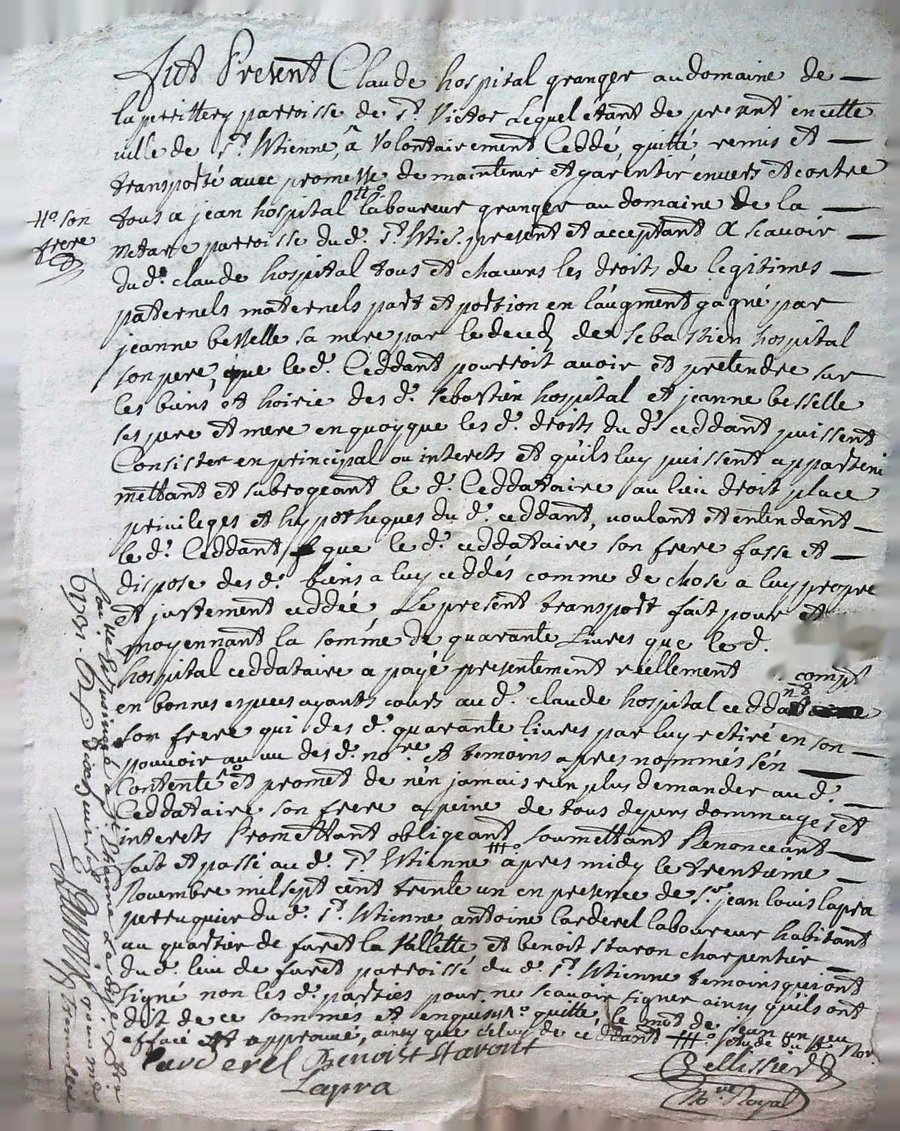 Fut Present Claude hospital granger au domaine de
la perittery parroisse de st. Victor Lequel étant de present en cette
ville de st. Etienne, a Volontairement Ceddé quitté remis et
transporté avec promesse de maintenir et garentir envers et contre
tous a jean hospital laboureur granger au domaine de la
#o son
frere
parroisse du d. st. present et acceptant A Scavoir
du d. claude hospital tous et chacuns les droits de legitimes
paternels maternels part et portion en l'augment gagné par
jeanne besselle sa mere par le deced de sebastien hospital
son pere, que le d. Ceddant pourroit avoir et pretendre sur
les biens et hoirie des d. sebastien hospital et jeanne besselle
ses pere et mere en quoyque les d. droits du d. ceddant puissent
Consister en principal ou interets et quils luy puissent apparteni
mettant et subrogeant le d. Ceddataire au lieu droit place
privileges et hypotheques du d. ceddant, voulant et entendant
le d. Ceddant que le d. ceddataire son frere fasse et
dispose des d. biens a luy ceddés comme de chose a luy propre
et justement ceddée Le present transport fait pour et
moyennant la somme de quarante Livres que le d.
hospital ceddataire a payé presentement reellement compt
en bonnes especes ayants cours au d. claude hospital
son frere qui des d. quarante livres par luy retiré en son
pouvoir au vu des d. nore. et temoins apres nommes s'en
Contente et promet de n'en jamais rien plus demander au d.
Ceddataire son frere a peine de tous depens dommages et
interets Promettant obligeant soumettant Renonceant
fait et passé au d. st Etienne apres midy le trentieme
Novembre mil sept cent trente un en presence de sr. jean louis lapra
perruquier du d. st. Etienne antoine larderel laboureur habitant
au quartier de furet la Vallette et benoit staron charpentier
du d. lieu de furet parroisse du d. st. Etienne temoins qui ont
signé non les d. parties pour ne scavoir signer ainsy quils ont
dit de ce sommes et enquis #o quitte le mot de jean un peu
effacé et approuvé, ainsy que celuy de ceddant
larderel Benoist Staront
Lapra
Pellissier
Nre Royal